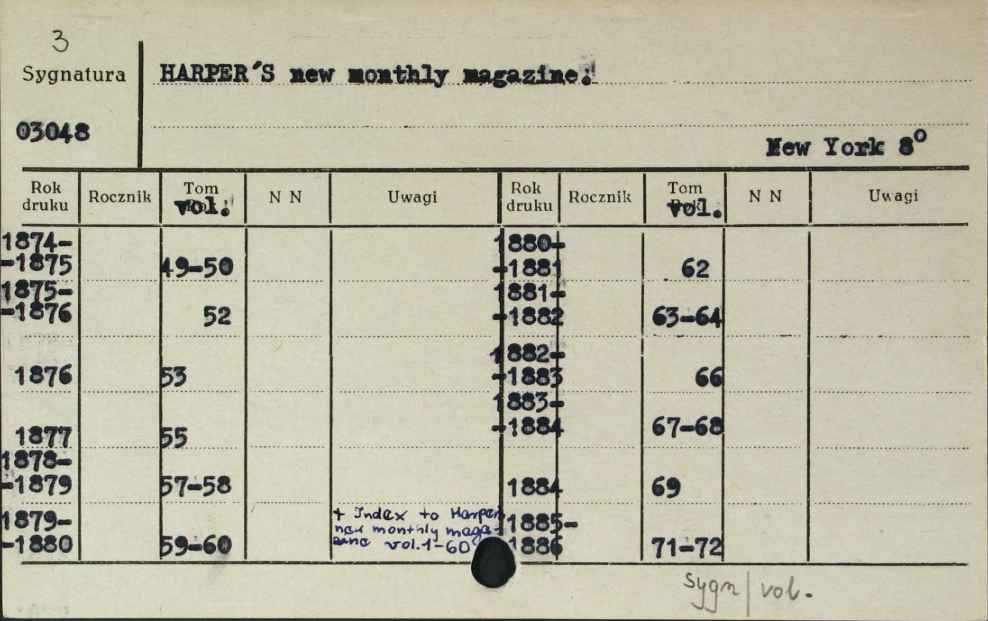 3
Sygnatura
HARPER'S new monthly magazine.
03048
New York 8°
Rok druku Rocznik Tom vol. N N Uwagi Rok druku Rocznik Tom vol. N N Uwagi
1874-
-1875 49-50
1875-
-1876 52
1876 53
1877 55
1878-
-1879 57-58
1879-
-1880 59-60
+ Index to Harpers
new monthly maga-
zine vol. 1-60
1880-
-1881 62
1881-
-1882 63-64
1882-
-1883 66
1883-
-1884 67-68
1884 69
1885-
1886 71-72
sygn/vol.